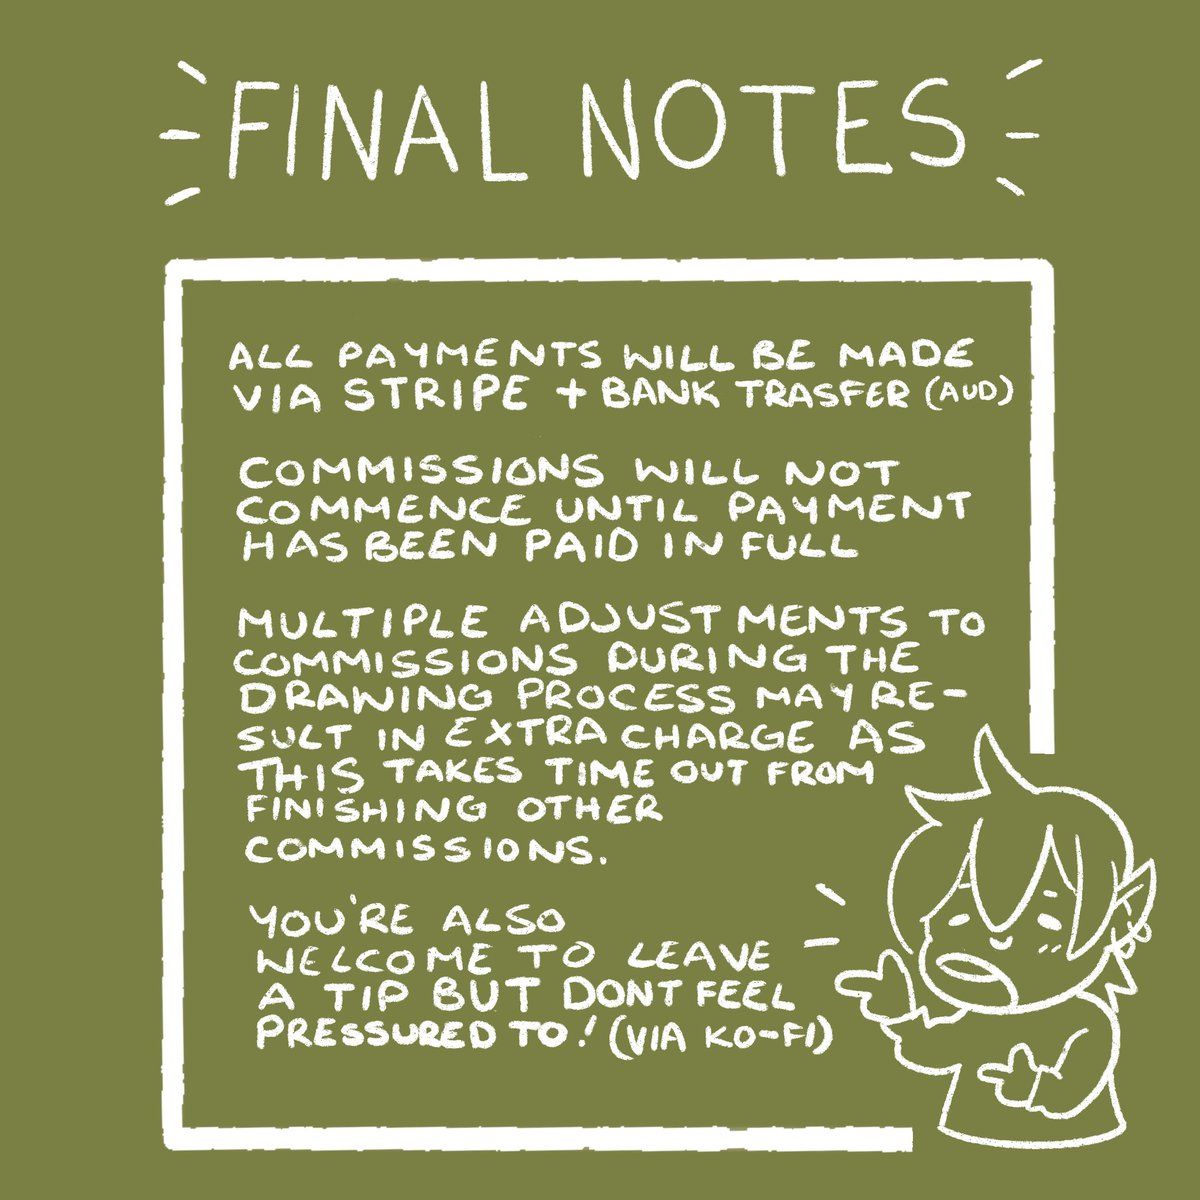 FINAL NOTES
ALL PAYMENTS WILL BE MADE
VIA STRIPE + BANK TRASFER (AUD)
COMMISSIONS WILL NOT
COMMENCE UNTIL PAYMENT
HAS BEEN PAID IN FULL
MULTIPLE ADJUSTMENTS TO
COMMISSIONS DURING THE
DRAWING PROCESS MAY RE-
SULT IN EXTRA CHARGE AS
THIS TAKES TIME OUT FROM
FINISHING OTHER
COMMISSIONS.
YOU'RE ALSO
WELCOME TO LEAVE
A TIP BUT DONT FEEL
PRESSURED TO! (VIA KO-FI)